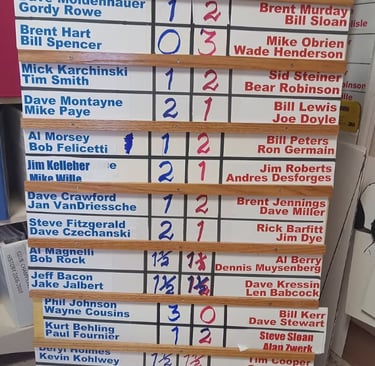 Dave Moldenhauer 1 2 Brent Murday
Gordy Rowe Bill Sloan
Brent Hart 0 3 Mike Obrien
Bill Spencer Wade Henderson
Mick Karchinski 1 2 Sid Steiner
Tim Smith Bear Robinson
Dave Montayne 2 1 Bill Lewis
Mike Paye Joe Doyle
Al Morsey 1 2 Bill Peters
Bob Felicetti Ron Germain
Jim Kelleher e 2 1 Jim Roberts
Mike Wille Andres Desforges
Dave Crawford 1 2 Brent Jennings
Jan VanDriessche Dave Miller
Steve Fitzgerald 2 1 Rick Barfitt
Dave Czechanski Jim Dye
Al Magnelli 1½ 1½ Al Berry
Bob Rock Dennis Muysenberg
Jeff Bacon 1½ 1½ Dave Kressin
Jake Jalbert Len Babcock
Phil Johnson 3 0 Bill Kerr
Wayne Cousins Dave Stewart
Kurt Behling 1 2 Steve Sloan
Paul Fournier Alan Zwerk
Deryl Holmes 1½ 1½ Tim Cooper
Kevin Kohlwey